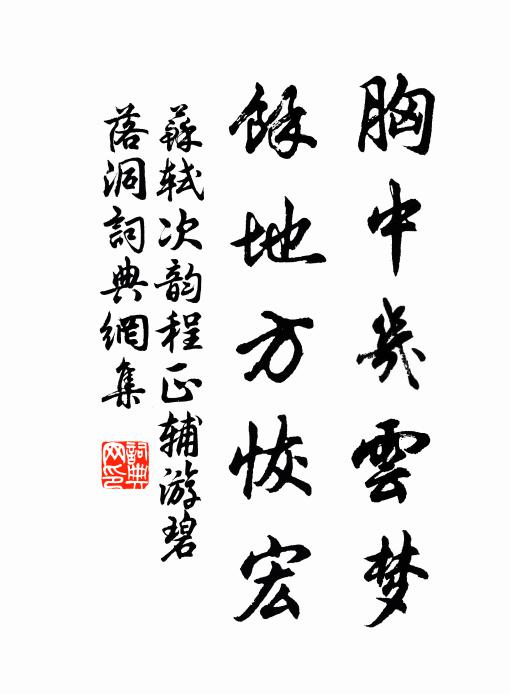 胸中幾雲梦
餘地方恢宏
蘇轼次韵程正辅游碧
落洞詞典網集
詞典
网印